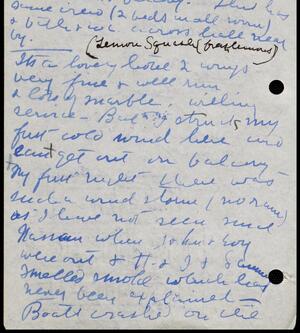 (2 beds in all room)
& bath & w.c. across hall near
by.
(Lemon Squash (fresh lemons)
Its a lovely hotel 2 wings
very fine & well run
& lots of marble, willing
service - But struck my
first cold wind here and
can't get out on balcony -
My first night there was
such a wind storm (no rain)
as I have not seen since
Nassau when
were out & H & I &
smelled smoke which has
never been explained -
Boats crashed on the